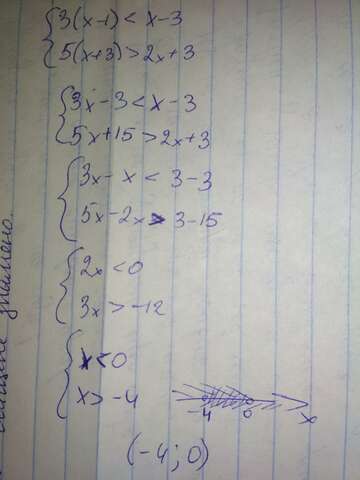 {3(x-1) < x-3
{5(x+3) > 2x+3
{3x-3 < x-3
{5x+15 > 2x+3
{3x-x < 3-3
{5x-2x > 3-15
{2x < 0
{3x > -12
{x < 0
{x > -4
-4 0 x
(-4; 0)
знаменю